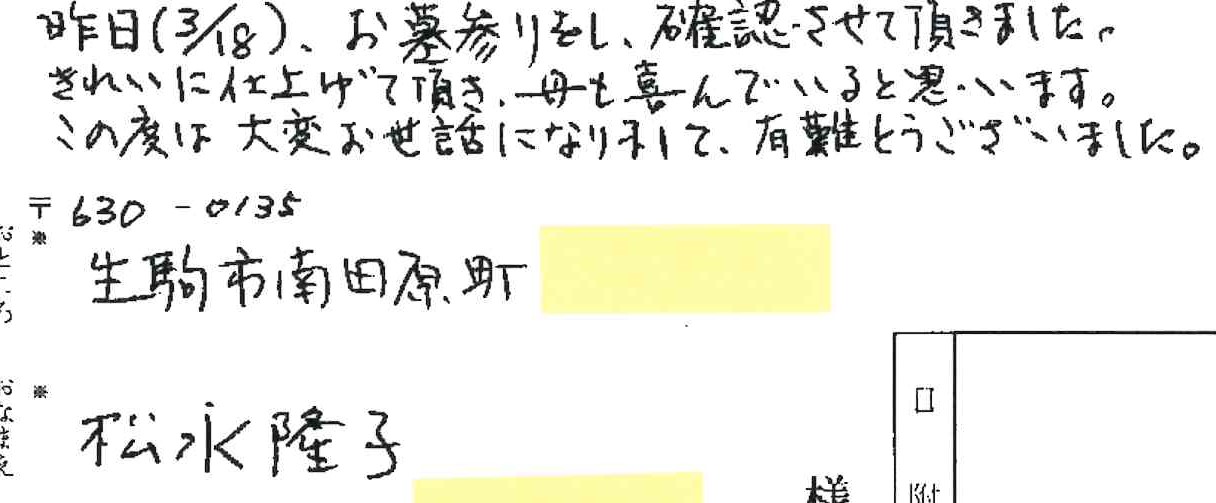 昨日(3/18)、お墓参りをし、確認させて頂きました。
きれいに仕上げて頂き、母も喜んでいると思います。
この度は大変お世話になりまして、有難とうございました。
〒630-0135
※
おところ
生駒市南田原町
※
おなまえ
松永隆子
様
口
附